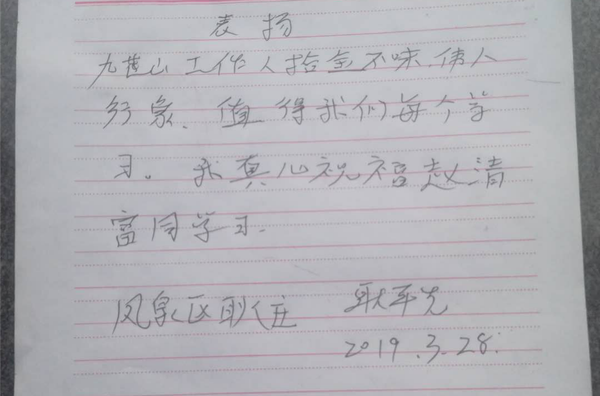 表扬
九莲山工作人拾金不昧.伟人
行象、值得我们每个学
习。我真心祝福赵清
富同学习.
凤泉区耿庄 耿平先
2019.3.28.